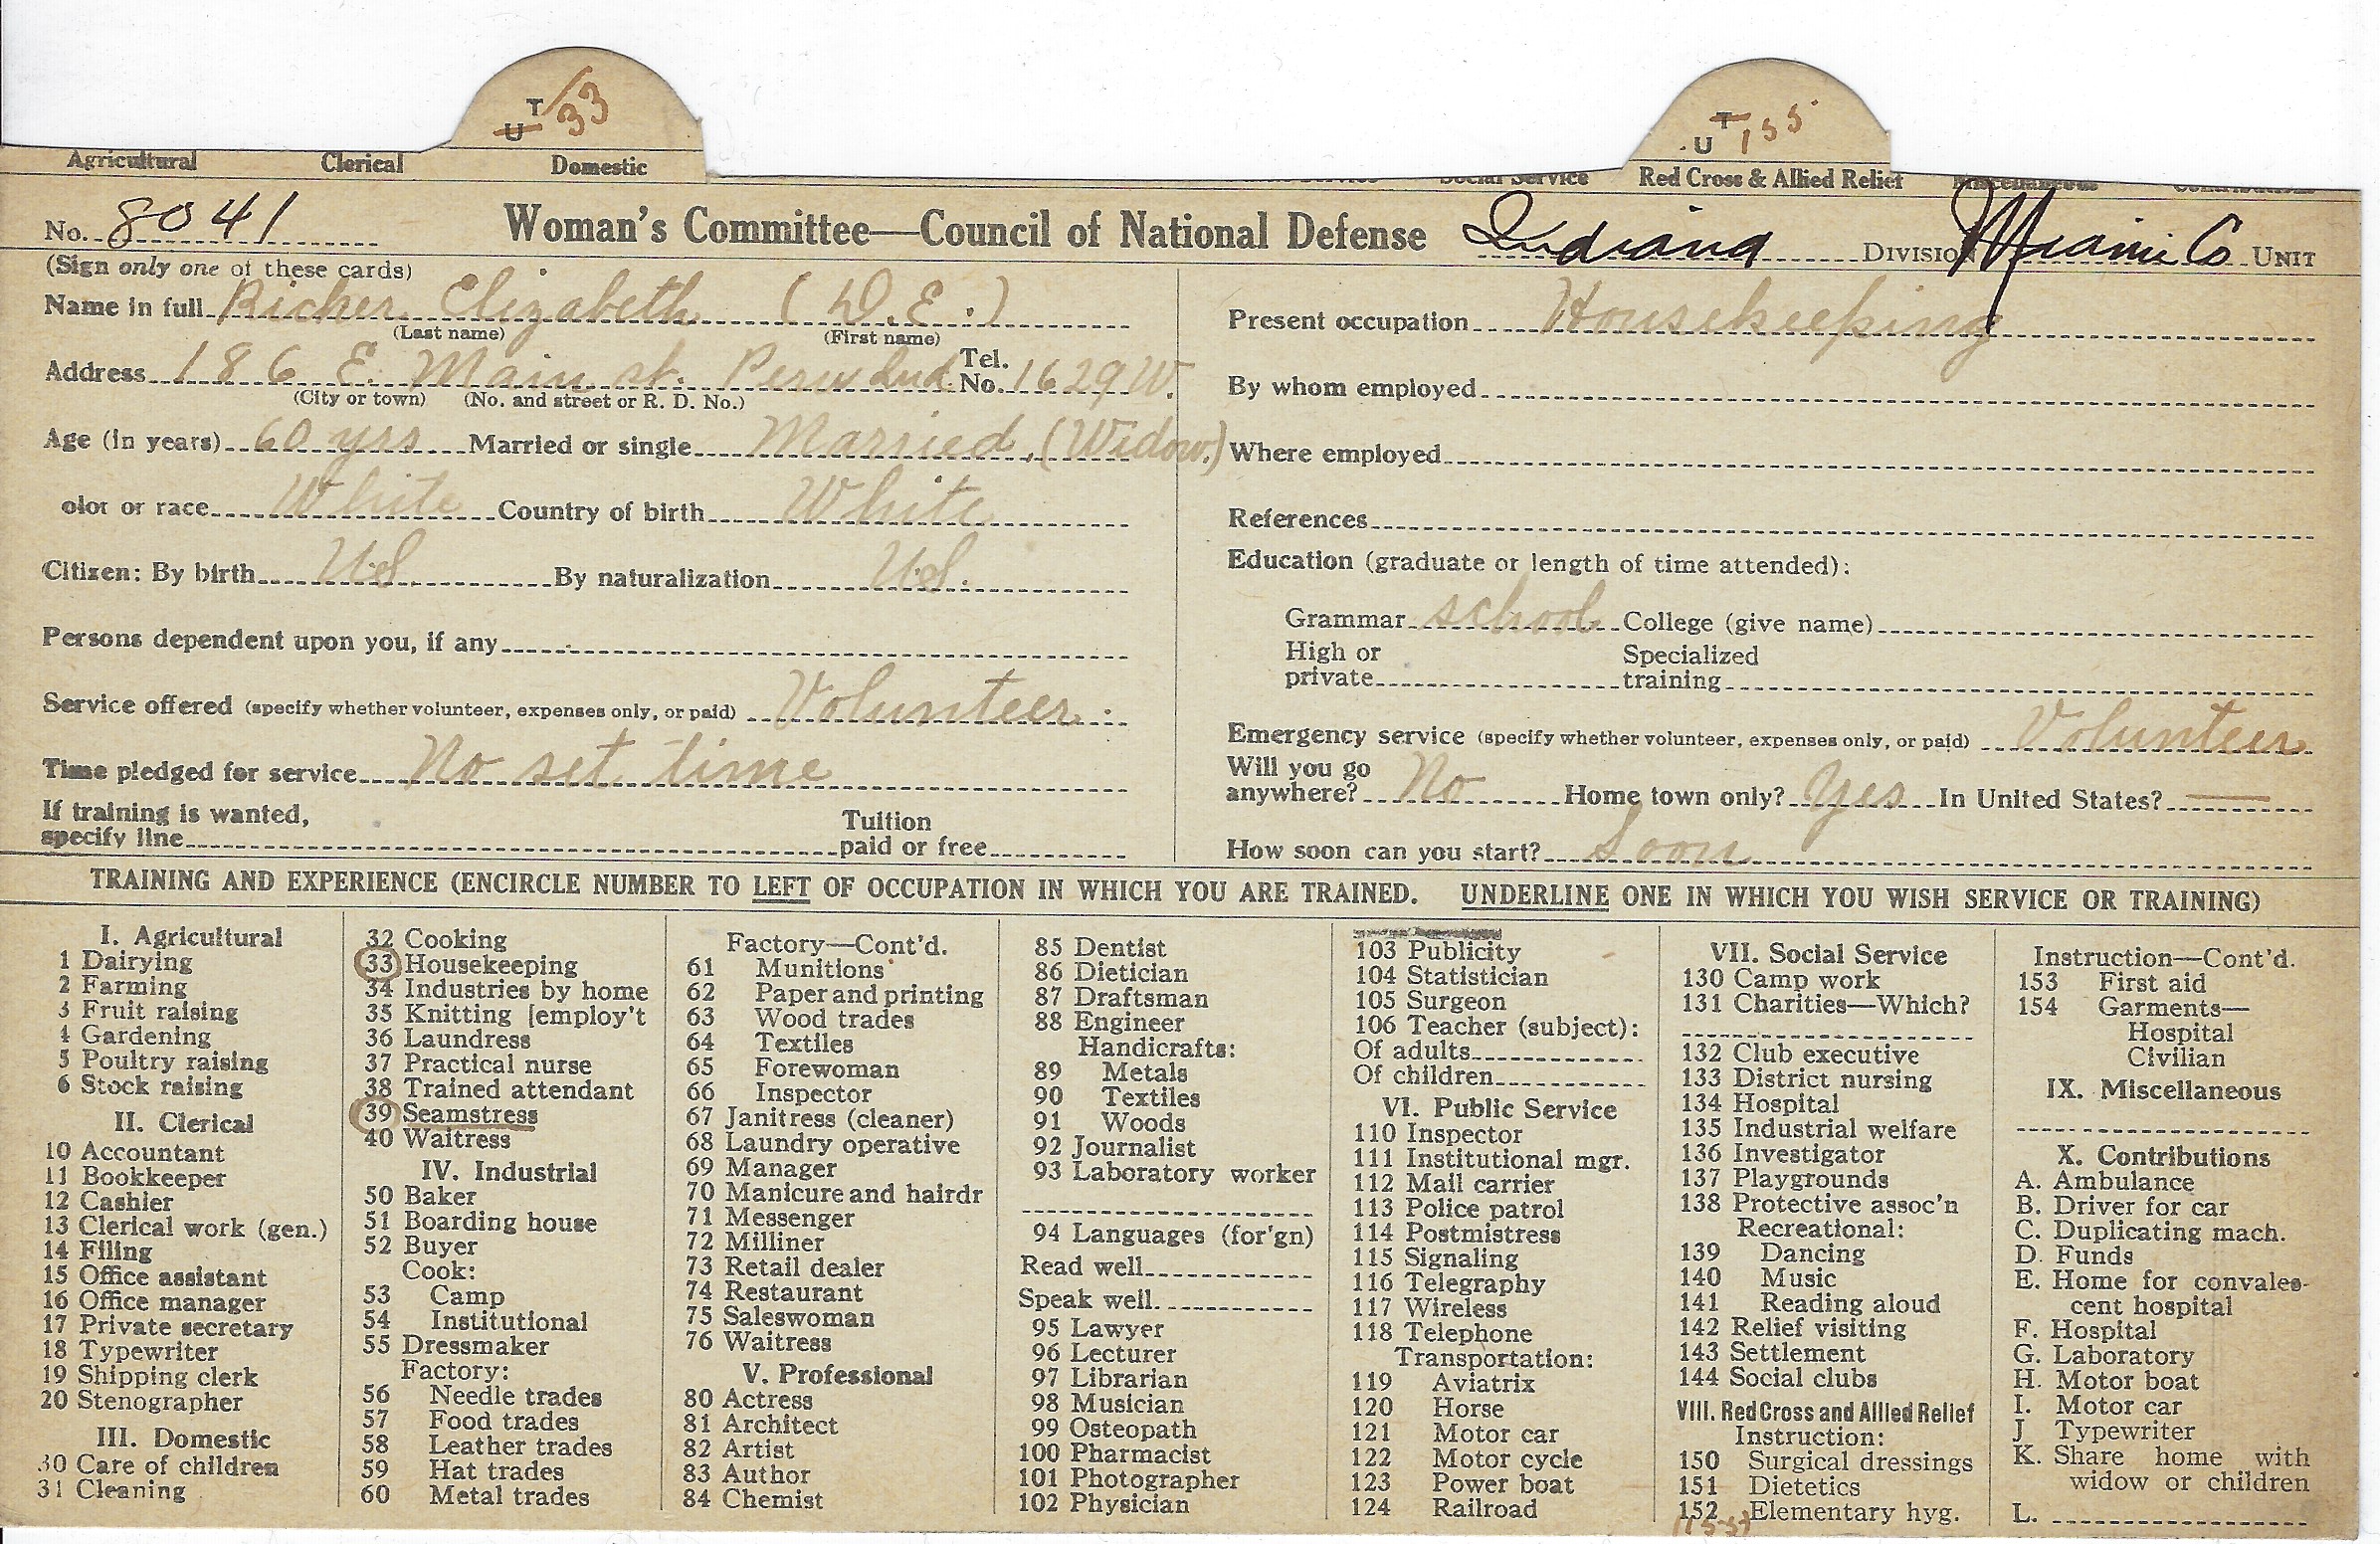 T 33
U
T 155
U
Agricultural Clerical Domestic Social Service Red Cross & Allied Relief Miscellaneous Contributions
No. 8041 Woman's Committee—Council of National Defense Indiana DIVISION Miami Co UNIT
(Sign only one of these cards)
Name in full Richer Elizabeth (D.E.)
(Last name) (First name)
Address 186 E. Main st. Peru Ind. Tel. No. 1629 W.
(City or town) (No. and street or R. D. No.)
Age (in years) 60 yrs Married or single Married. (Widow.)
olor or race White Country of birth White
Citizen: By birth U.S By naturalization U.S.
Persons dependent upon you, if any
Service offered (specify whether volunteer, expenses only, or paid) Volunteer.
Time pledged for service No set time
If training is wanted,
specify line Tuition paid or free
Present occupation Housekeeping
By whom employed
Where employed
References
Education (graduate or length of time attended):
Grammar school College (give name)
High or private Specialized training
Emergency service (specify whether volunteer, expenses only, or paid) Volunteer
Will you go anywhere? No Home town only? Yes In United States? —
How soon can you start? Soon
TRAINING AND EXPERIENCE (ENCIRCLE NUMBER TO LEFT OF OCCUPATION IN WHICH YOU ARE TRAINED. UNDERLINE ONE IN WHICH YOU WISH SERVICE OR TRAINING)
I. Agricultural
1 Dairying
2 Farming
3 Fruit raising
4 Gardening
5 Poultry raising
6 Stock raising
II. Clerical
10 Accountant
11 Bookkeeper
12 Cashier
13 Clerical work (gen.)
14 Filing
15 Office assistant
16 Office manager
17 Private secretary
18 Typewriter
19 Shipping clerk
20 Stenographer
III. Domestic
30 Care of children
31 Cleaning
32 Cooking
33 Housekeeping
34 Industries by home
35 Knitting [employ't
36 Laundress
37 Practical nurse
38 Trained attendant
39 Seamstress
40 Waitress
IV. Industrial
50 Baker
51 Boarding house
52 Buyer
Cook:
53 Camp
54 Institutional
55 Dressmaker
Factory:
56 Needle trades
57 Food trades
58 Leather trades
59 Hat trades
60 Metal trades
Factory—Cont'd.
61 Munitions
62 Paper and printing
63 Wood trades
64 Textiles
65 Forewoman
66 Inspector
67 Janitress (cleaner)
68 Laundry operative
69 Manager
70 Manicure and hairdr
71 Messenger
72 Milliner
73 Retail dealer
74 Restaurant
75 Saleswoman
76 Waitress
V. Professional
80 Actress
81 Architect
82 Artist
83 Author
84 Chemist
85 Dentist
86 Dietician
87 Draftsman
88 Engineer
Handicrafts:
89 Metals
90 Textiles
91 Woods
92 Journalist
93 Laboratory worker
94 Languages (for'gn)
Read well
Speak well.
95 Lawyer
96 Lecturer
97 Librarian
98 Musician
99 Osteopath
100 Pharmacist
101 Photographer
102 Physician
103 Publicity
104 Statistician
105 Surgeon
106 Teacher (subject):
Of adults
Of children
VI. Public Service
110 Inspector
111 Institutional mgr.
112 Mail carrier
113 Police patrol
114 Postmistress
115 Signaling
116 Telegraphy
117 Wireless
118 Telephone
Transportation:
119 Aviatrix
120 Horse
121 Motor car
122 Motor cycle
123 Power boat
124 Railroad
VII. Social Service
130 Camp work
131 Charities—Which?
132 Club executive
133 District nursing
134 Hospital
135 Industrial welfare
136 Investigator
137 Playgrounds
138 Protective assoc'n
Recreational:
139 Dancing
140 Music
141 Reading aloud
142 Relief visiting
143 Settlement
144 Social clubs
VIII. Red Cross and Allied Relief
Instruction:
150 Surgical dressings
151 Dietetics
152 Elementary hyg.
(155)
Instruction—Cont'd.
153 First aid
154 Garments—
Hospital
Civilian
IX. Miscellaneous
X. Contributions
A. Ambulance
B. Driver for car
C. Duplicating mach.
D. Funds
E. Home for convales-
cent hospital
F. Hospital
G. Laboratory
H. Motor boat
I. Motor car
J Typewriter
K. Share home with
widow or children
L.